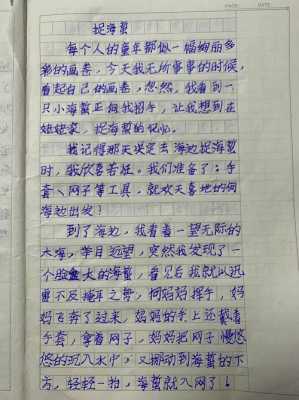 捉海蜇
每个人的童年都似一幅绚丽多
彩的画卷，今天我无所事事的时候，
看起自己的画卷，忽然，我看到一
只小海蜇正向我招手，让我想到在
姥姥家，捉海蜇的记忆。
我记得那天决定去海边捉海蜇
时，我欣喜若狂。我们准备了：手
套、网子等工具，就欢天喜地的向
海边出发！
到了海边，我看着一望无际的
大海，举目远望，突然我发现了一
个脸盆大的海蜇，看见后我就以迅
雷不及掩耳之势，向妈妈挥手，妈
妈飞奔了过来，妈妈的手上还戴着
手套，拿着网子，妈妈把网子慢悠
悠的沉入水中，又挪动到海蜇的下
方，轻轻一抬，海蜇就入网了！